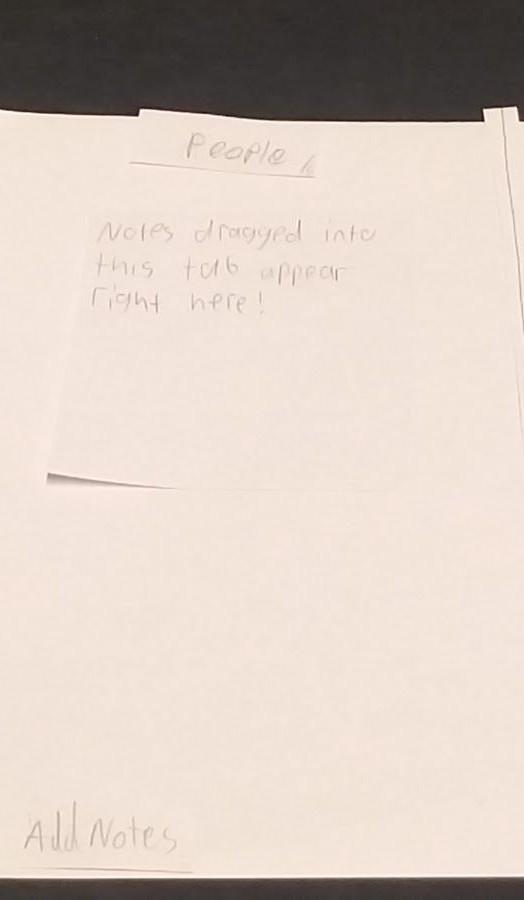 People
Notes dragged into
this tab appear
right here!
Add Notes